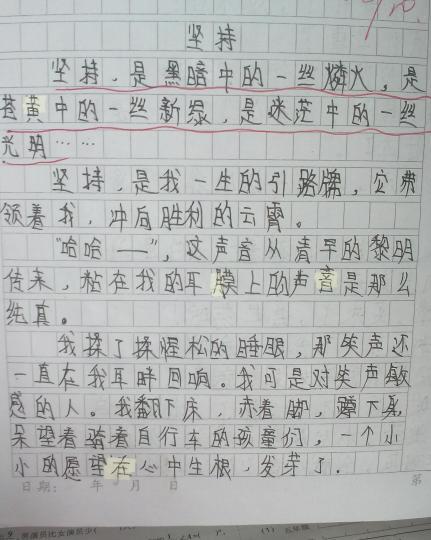 坚持
坚持，是黑暗中的一丝燐火，是
苍黄中的一丝新绿，是迷茫中的一丝
光明……
坚持，是我一生的引路牌，它带
领着我，冲向胜利的云霄。
“哈哈——”，这声音从清早的黎明
传来，粘在我的耳膜上的声音是那么
纯真。
我揉了揉惺松的睡眼，那笑声还
一直在我耳畔回响。我可是对笑声敏
感的人。我翻下床，赤着脚，蹲下身，
呆望着骑着自行车的孩童们，一个小
小的愿望在心中生根，发芽了.
日期： 年 月 日 第